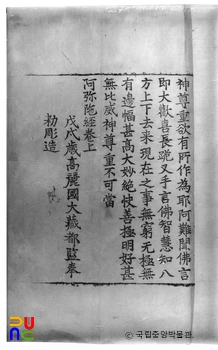 神尊重欲有所作為耶阿難聞佛言
即大歡喜長跪叉手言佛智慧知八
方上下去来現在之事無窮無極無
有邊幅甚高大妙絶快善極明好甚
無比威神尊重不可當
阿弥陁經卷上
戊戌歲高麗國大藏都監奉
勑彫造
국립중앙박물관